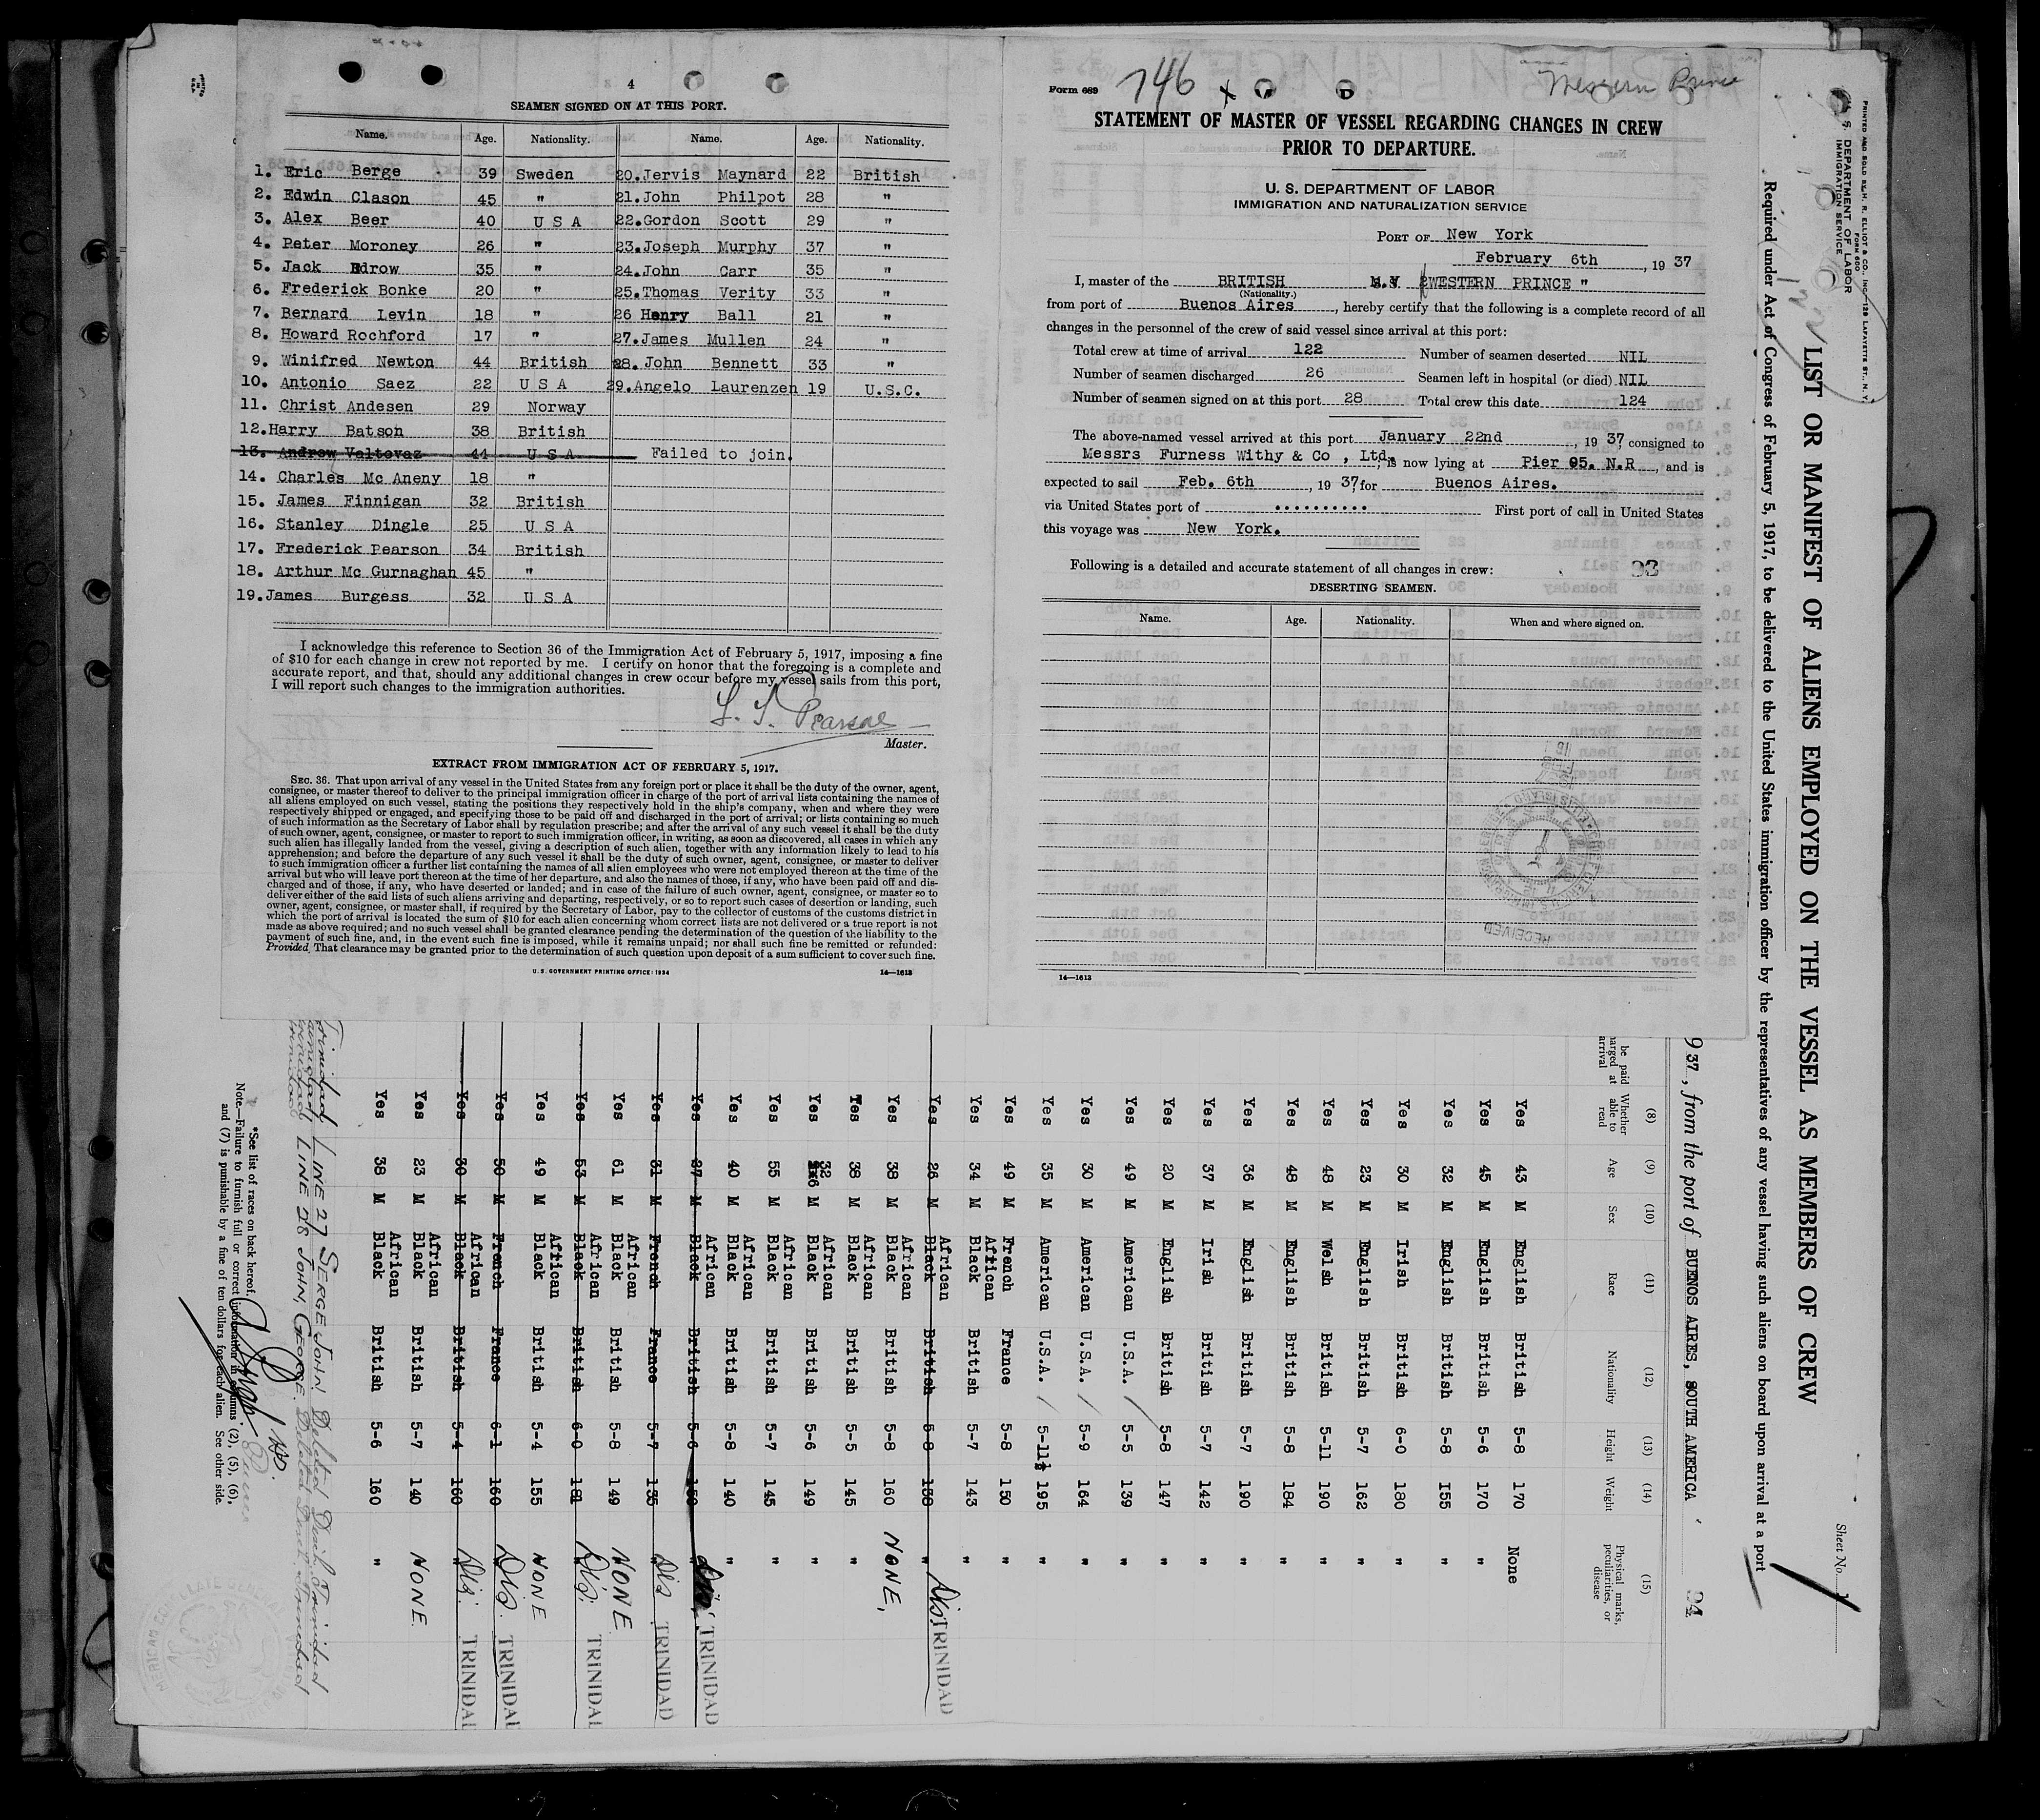 4
SEAMEN SIGNED ON AT THIS PORT.
Name. Age. Nationality. Name. Age. Nationality.
1. Eric Berge 39 Sweden 20.Jervis Maynard 22 British
2. Edwin Clason 45 " 21.John Philpot 28 "
3. Alex Beer 40 U S A 22.Gordon Scott 29 "
4. Peter Moroney 26 " 23.Joseph Murphy 37 "
5. Jack Edrow 35 " 24.John Carr 35 "
6. Frederick Bonke 20 " 25.Thomas Verity 33 "
7. Bernard Levin 18 " 26 Henry Ball 21 "
8. Howard Rochford 17 " 27.James Mullen 24 "
9. Winifred Newton 44 British 28. John Bennett 33 "
10. Antonio Saez 22 U S A 29.Angelo Laurenzen 19 U.S.C.
11. Christ Andesen 29 Norway
12.Harry Batson 38 British
13. Andrew Valtovaz 44 U S A Failed to join.
14. Charles Mc Aneny 18 "
15. James Finnigan 32 British
16. Stanley Dingle 25 U S A
17. Frederick Pearson 34 British
18. Arthur Mc Gurnaghan 45 "
19.James Burgess 32 U S A
I acknowledge this reference to Section 36 of the Immigration Act of February 5, 1917, imposing a fine
of $10 for each change in crew not reported by me. I certify on honor that the foregoing is a complete and
accurate report, and that, should any additional changes in crew occur before my vessel sails from this port,
I will report such changes to the immigration authorities.
Master.
EXTRACT FROM IMMIGRATION ACT OF FEBRUARY 5, 1917.
SEC. 36. That upon arrival of any vessel in the United States from any foreign port or place it shall be the duty of the owner, agent,
consignee, or master thereof to deliver to the principal immigration officer in charge of the port of arrival lists containing the names of
all aliens employed on such vessel, stating the positions they respectively hold in the ship's company, when and where they were
respectively shipped or engaged, and specifying those to be paid off and discharged in the port of arrival; or lists containing so much
of such information as the Secretary of Labor shall by regulation prescribe; and after the arrival of any such vessel it shall be the duty
of such owner, agent, consignee, or master to report to such immigration officer, in writing, as soon as discovered, all cases in which any
such alien has illegally landed from the vessel, giving a description of such alien, together with any information likely to lead to his
apprehension; and before the departure of any such vessel it shall be the duty of such owner, agent, consignee, or master to deliver
to such immigration officer a further list containing the names of all alien employees who were not employed thereon at the time of the
arrival but who will leave port thereon at the time of her departure, and also the names of those, if any, who have been paid off and dis-
charged and of those, if any, who have deserted or landed; and in case of the failure of such owner, agent, consignee, or master so to
deliver either of the said lists of such aliens arriving and departing, respectively, or so to report such cases of desertion or landing, such
owner, agent, consignee, or master shall, if required by the Secretary of Labor, pay to the collector of customs of the customs district in
which the port of arrival is located the sum of $10 for each alien concerning whom correct lists are not delivered or a true report is not
made as above required; and no such vessel shall be granted clearance pending the determination of the question of the liability to the
payment of such fine, and, in the event such fine is imposed, while it remains unpaid; nor shall such fine be remitted or refunded:
Provided, That clearance may be granted prior to the determination of such question upon deposit of a sum sufficient to cover such fine.
U. S. GOVERNMENT PRINTING OFFICE: 1934 14—1613
Form 689 746 Western Prince
STATEMENT OF MASTER OF VESSEL REGARDING CHANGES IN CREW
PRIOR TO DEPARTURE.
U. S. DEPARTMENT OF LABOR
IMMIGRATION AND NATURALIZATION SERVICE
PORT OF New York
February 6th, 19 37
I, master of the BRITISH M.V "WESTERN PRINCE "
(Nationality.)
from port of Buenos Aires, hereby certify that the following is a complete record of all
changes in the personnel of the crew of said vessel since arrival at this port:
Total crew at time of arrival 122 Number of seamen deserted NIL
Number of seamen discharged 26 Seamen left in hospital (or died) NIL
Number of seamen signed on at this port 28 Total crew this date 124
The above-named vessel arrived at this port January 22nd, 19 37, consigned to
Messrs Furness Withy & Co , Ltd., is now lying at Pier 95. N.R, and is
expected to sail Feb. 6th, 19 37, for Buenos Aires.
via United States port of .......... First port of call in United States
this voyage was New York.
Following is a detailed and accurate statement of all changes in crew: 93
DESERTING SEAMEN.
Name. Age. Nationality. When and where signed on.
RECEIVED
14—1613
PRINTED AND SOLD BY H. R. ELLIOT & CO., INC., 129 LAFAYETTE ST., N.Y.
FORM 600
U. S. DEPARTMENT OF LABOR
IMMIGRATION SERVICE
Sheet No. 1
LIST OR MANIFEST OF ALIENS EMPLOYED ON THE VESSEL AS MEMBERS OF CREW
Required under Act of Congress of February 5, 1917, to be delivered to the United States immigration officer by the representatives of any vessel having such aliens on board upon arrival at a port
37, from the port of BUENOS AIRES, SOUTH AMERICA 94
(8) (9) (10) (11) (12) (13) (14) (15)
Whether able to read Age Sex Race Nationality Height Weight Physical marks, peculiarities, or disease
Yes 43 M English British 5-8 170 None
Yes 45 M English British 5-6 170 "
Yes 32 M English British 5-8 155 "
Yes 30 M Irish British 6-0 180 "
Yes 23 M English British 5-7 162 "
Yes 48 M Welsh British 5-11 190 "
Yes 48 M English British 5-8 184 "
Yes 36 M English British 5-7 190 "
Yes 37 M Irish British 5-7 142 "
Yes 20 M English British 5-8 147 "
Yes 49 M American U.S.A. 5-5 139 "
Yes 30 M American U.S.A. 5-9 164 "
Yes 35 M American U.S.A. 5-11½ 195 "
Yes 49 M French France 5-8 150 "
Yes 34 M African Black British 5-7 143 "
Yes 26 M African Black British 5-8 " Dis TRINIDAD
Yes 38 M African Black British 5-8 160 NONE,
Yes 38 M African Black British 5-5 145 "
Yes 32 M African Black British 5-6 149 "
Yes 55 M African Black British 5-7 145 "
Yes 40 M African Black British 5-8 140 "
Yes 27 M African Black British 5-6 150 Dis. TRINIDAD
Yes 31 M French France 5-7 135 Dis TRINIDAD
Yes 61 M African Black British 5-8 149 NONE
Yes 53 M African Black British 6-0 181 Dis. TRINIDAD
Yes 49 M African Black British 5-4 155 NONE
Yes 50 M French France 6-1 160 Dis. TRINIDAD
Yes 30 M African Black British 5-4 160 Dis. TRINIDAD
Yes 23 M African Black British 5-7 140 NONE
Yes 38 M African Black British 5-6 160 "
LINE 27 SERGE JOHN Deleted Disch. Trinidad
LINE 28 JOHN, GEORGE Deleted Trinidad
*See list of races on back hereof.
Note.—Failure to furnish full or correct information in columns (2), (5), (6),
and (7) is punishable by a fine of ten dollars for each alien. See other side.